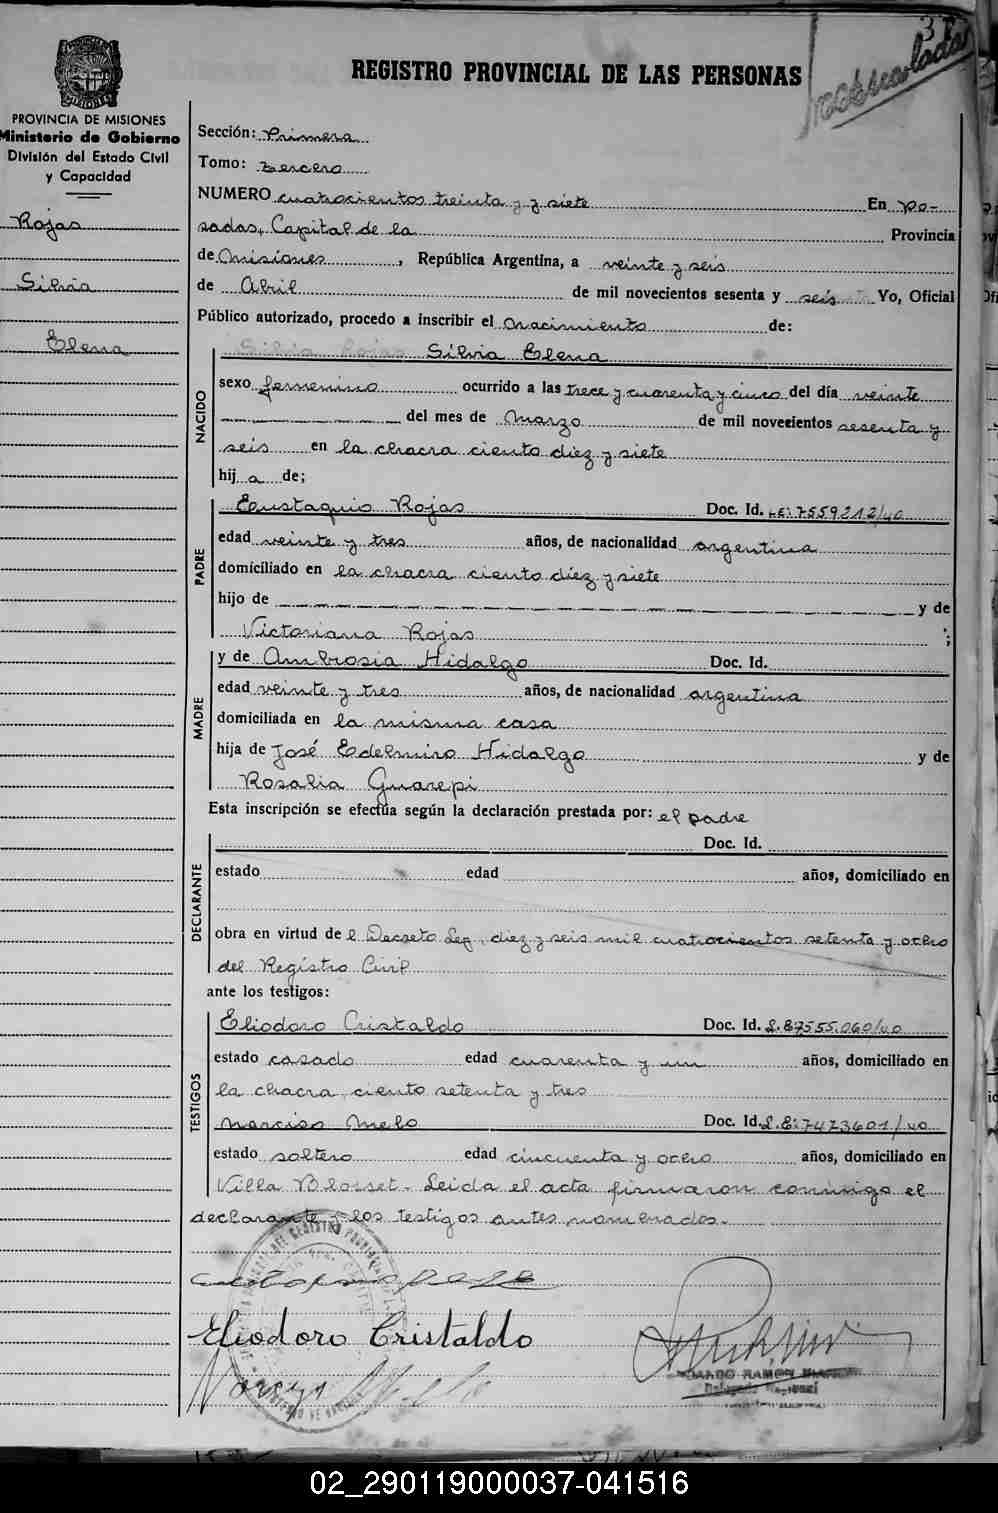 37
REGISTRO PROVINCIAL DE LAS PERSONAS
PROVINCIA DE MISIONES
Ministerio de Gobierno
División del Estado Civil
y Capacidad
Rojas
Silvia
Elena
Sección: Primera
Tomo: tercero
NUMERO cuatrocientos treinta y siete En Po-
sadas, Capital de la Provincia
de Misiones, República Argentina, a veinte y seis
de Abril de mil novecientos sesenta y seis Yo, Oficial
Público autorizado, procedo a inscribir el nacimiento de:
NACIDO
Silvia Elena
sexo femenino ocurrido a las trece y cuarenta y cinco del día veinte
del mes de Marzo de mil novecientos sesenta y
seis en la chacra ciento diez y siete
hij a de;
PADRE
Eustaquio Rojas Doc. Id. L.E: 7559212/40
edad veinte y tres años, de nacionalidad argentina
domiciliado en la chacra ciento diez y siete
hijo de y de
Victoriana Rojas ;
MADRE
y de Ambrosia Hidalgo Doc. Id.
edad veinte y tres años, de nacionalidad argentina
domiciliada en la misma casa
hija de José Edelmiro Hidalgo y de
Rosalia Guarepi
Esta inscripción se efectúa según la declaración prestada por: el padre
DECLARANTE
Doc. Id.
estado edad años, domiciliado en
obra en virtud de l Decreto Ley, diez y seis mil cuatrocientos setenta y ocho
del Registro Civil
ante los testigos:
TESTIGOS
Eliodoro Cristaldo Doc. Id. L.E 7555.060/40
estado casado edad cuarenta y un años, domiciliado en
la chacra ciento setenta y tres
Narciso Melo Doc. Id. L.E: 7473601/40
estado soltero edad cincuenta y ocho años, domiciliado en
Villa Blosset. Leida el acta firmaron conmigo el
declarante y los testigos antes nombrados.
Eliodoro Cristaldo
RAMON
02_290119000037-041516